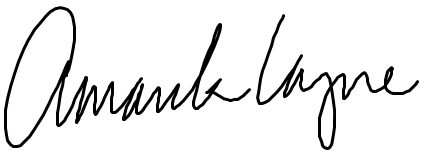 Amanda Layne